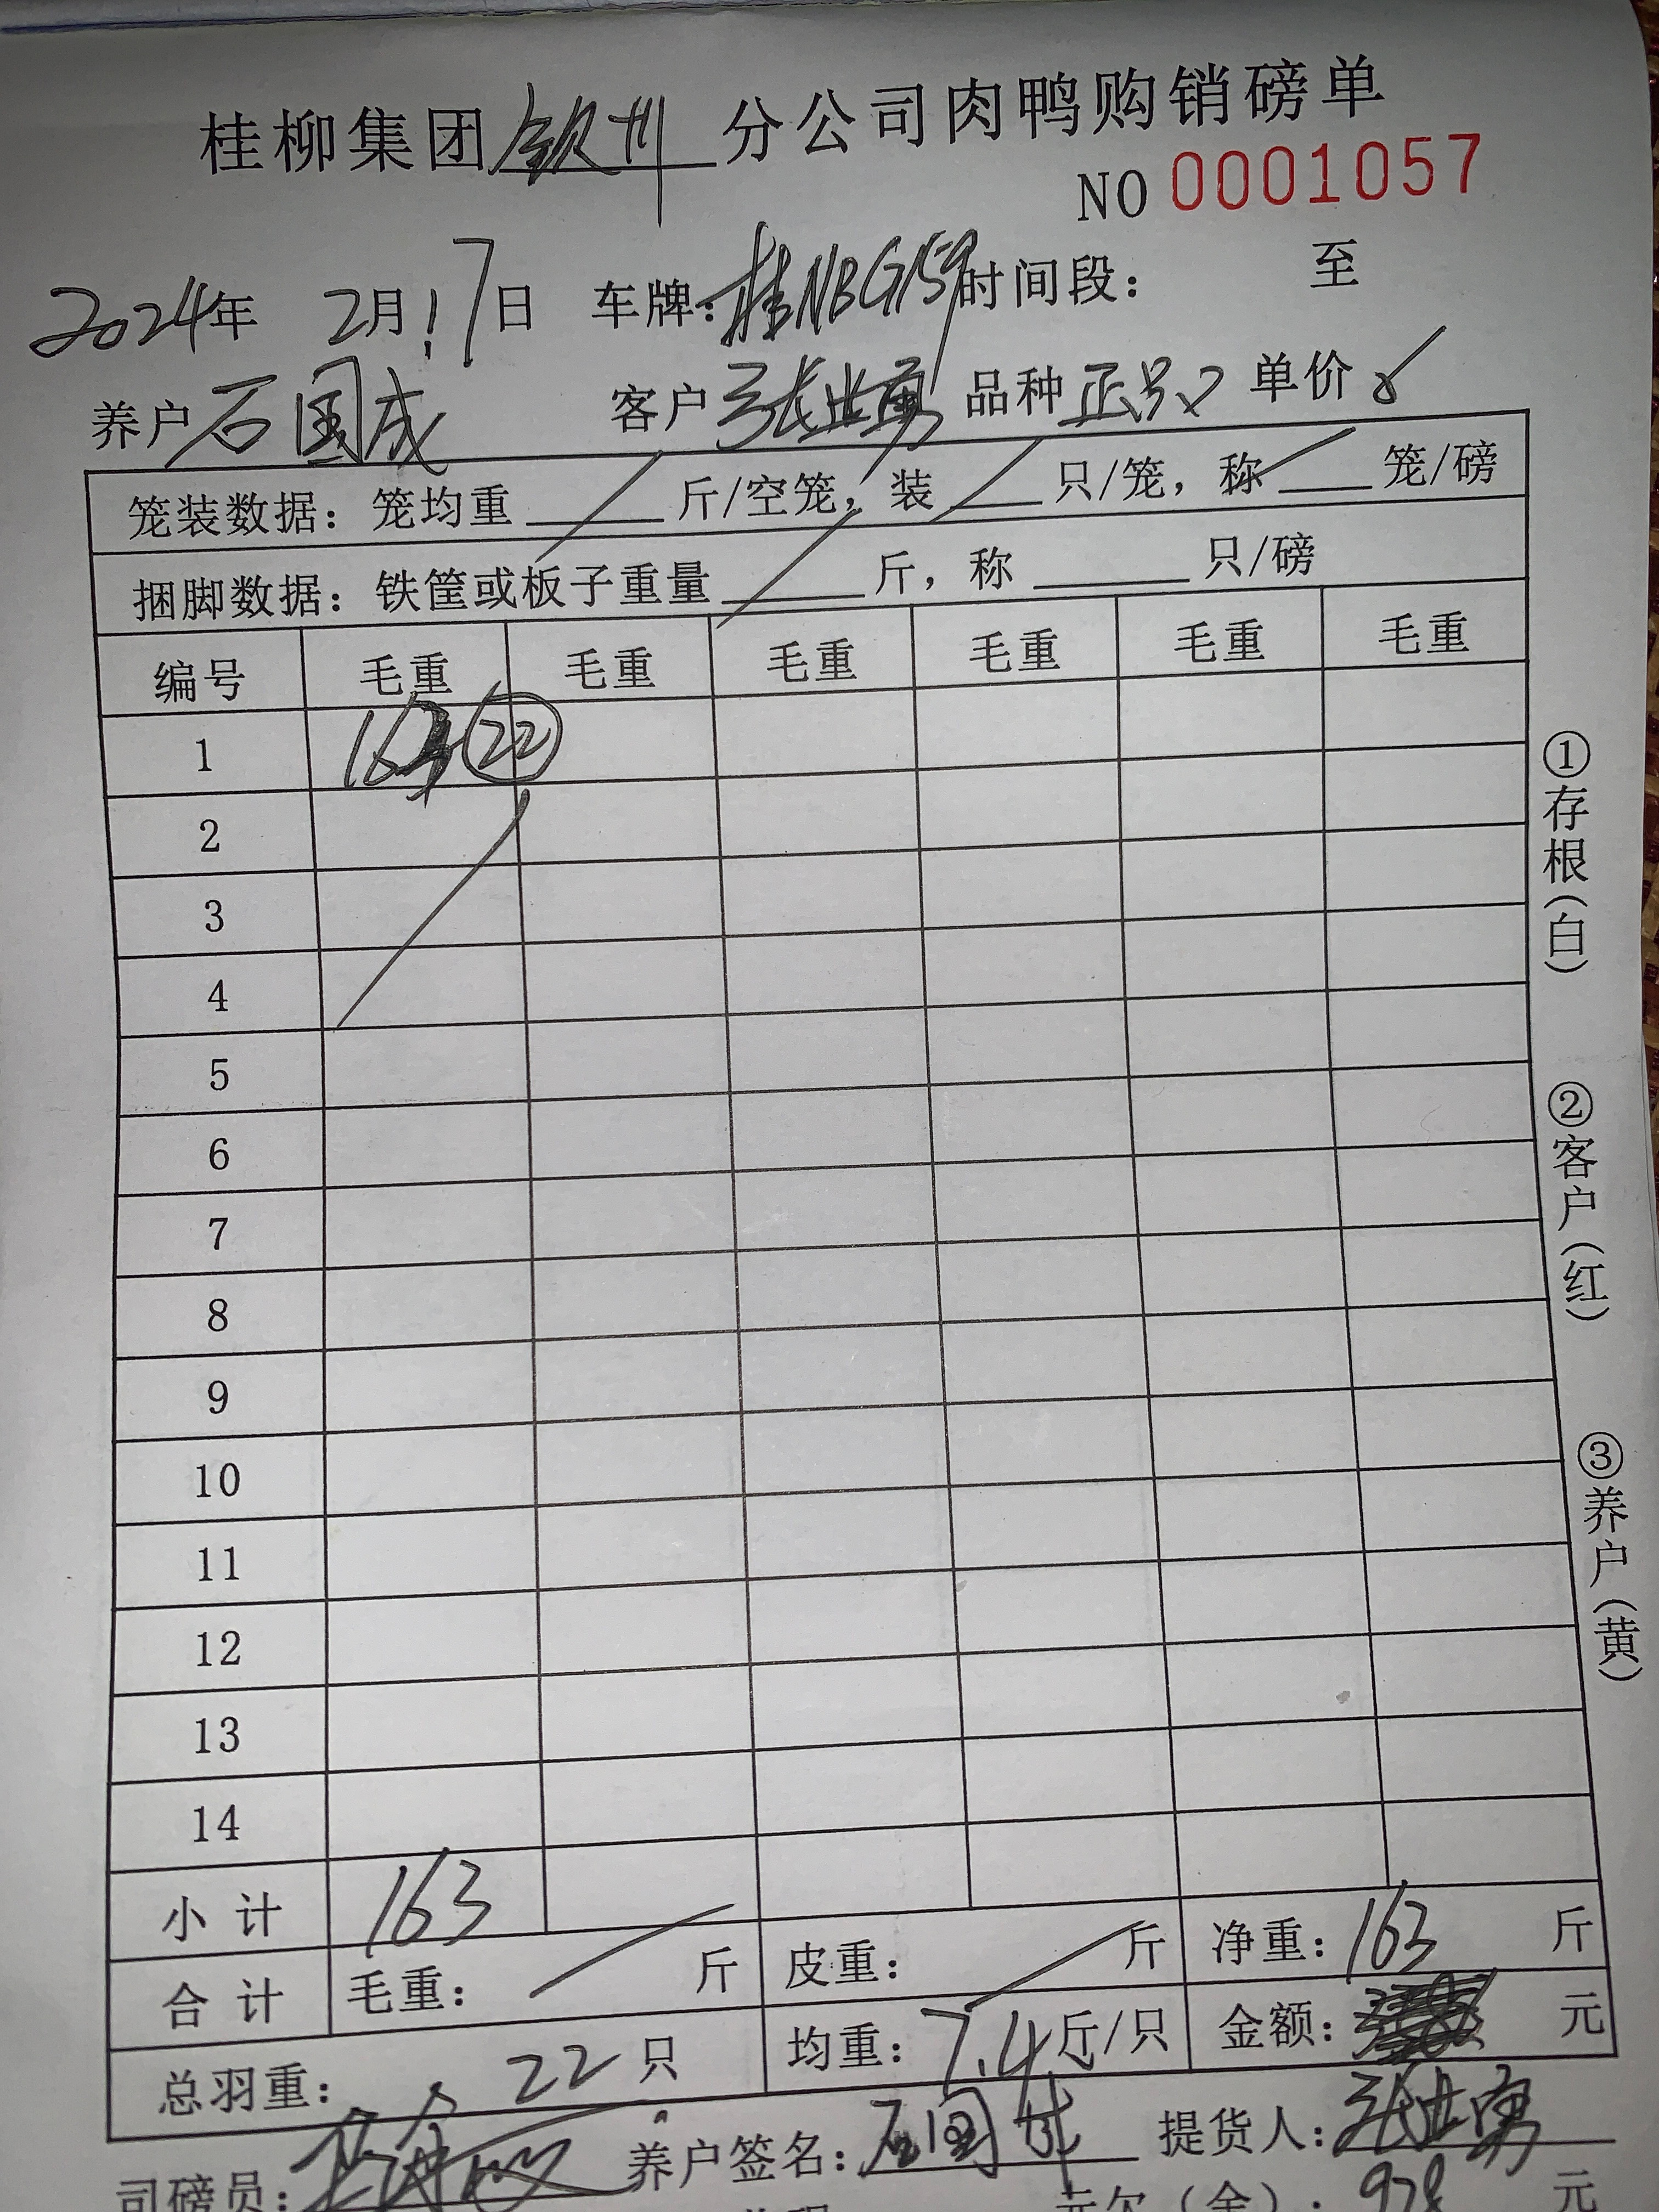 桂柳集团钦州分公司肉鸭购销磅单
NO 0001057
2024年 2月17日 车牌:桂NBG159 时间段: 至
养户 石国成 客户 张业勇 品种 正号 单价
笼装数据: 笼均重 斤/空笼, 装 只/笼, 称 笼/磅
捆脚数据: 铁筐或板子重量 斤, 称 只/磅
编号 毛重 毛重 毛重 毛重 毛重 毛重
1 163 22
2
3
4
5
6
7
8
9
10
11
12
13
14
小计 163
合计 毛重: 斤 皮重: 斤 净重: 163 斤
总羽重: 22只 均重: 7.4斤/只 金额: 元
司磅员: 养户签名: 石国成 提货人: 张业勇
元欠(余): 978 元
①存根(白)
②客户(红)
③养户(黄)